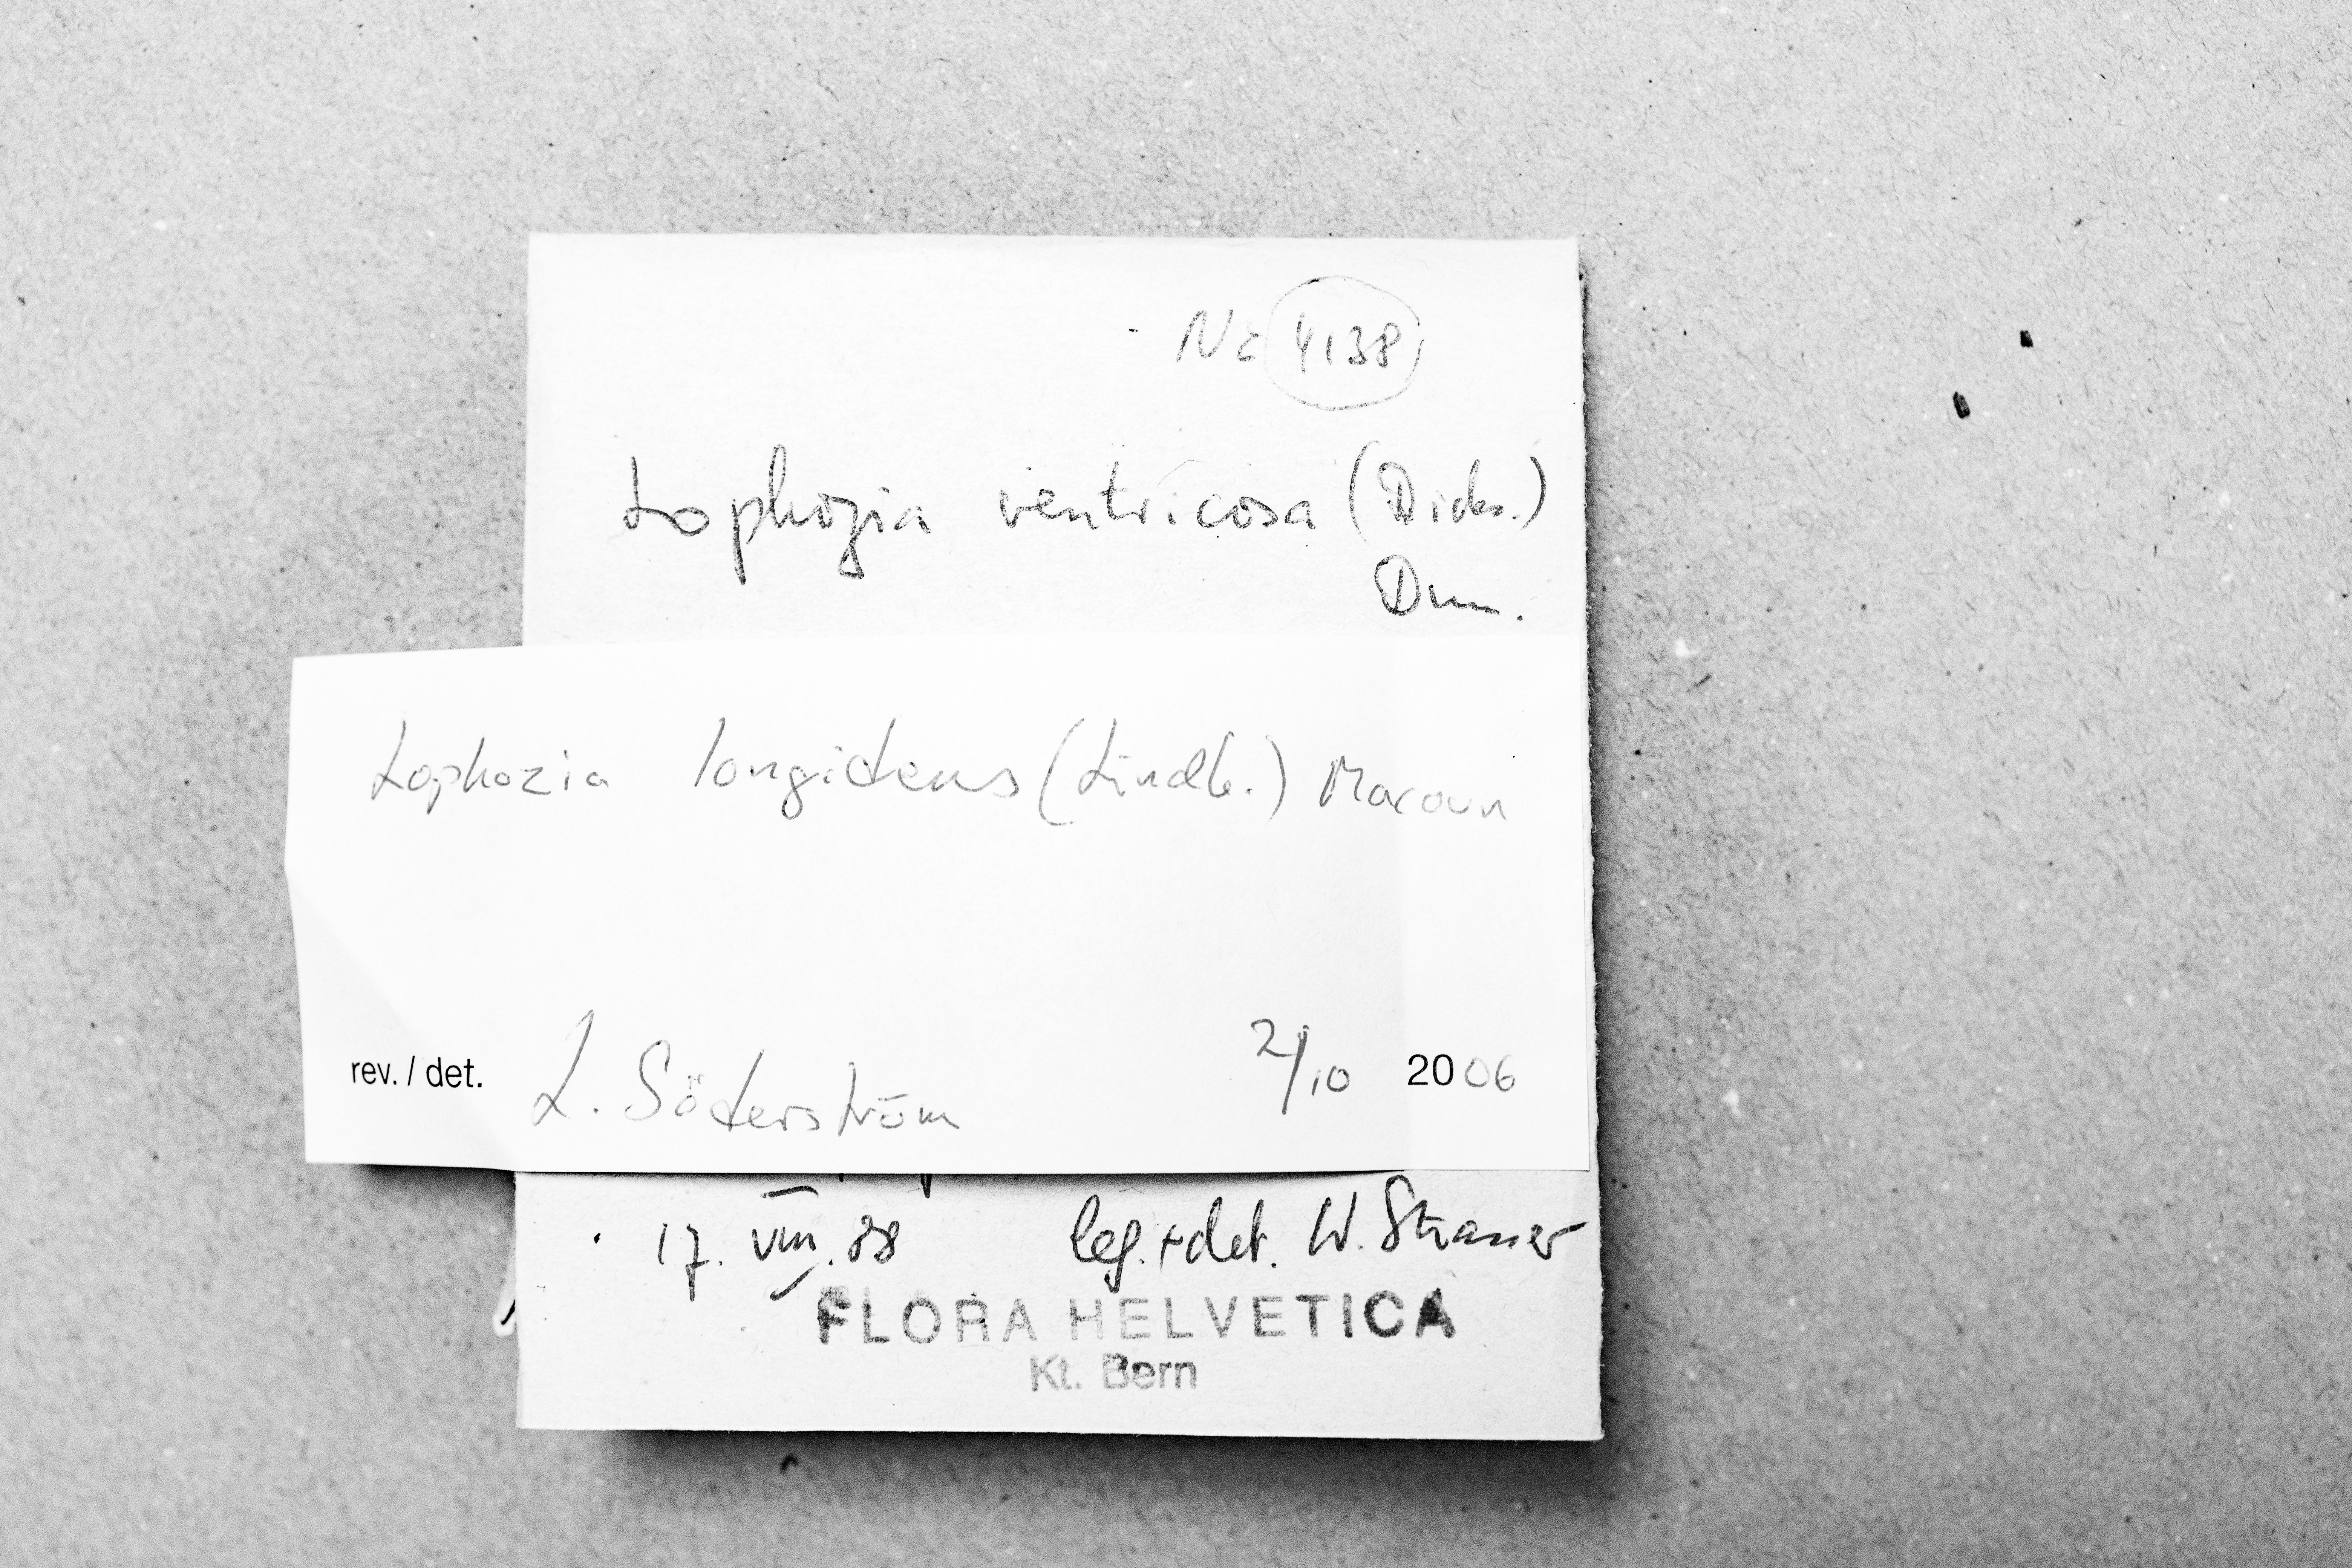 No 4138
Lophozia ventricosa (Dicks.)
Dum.
Lophozia longidens (Lindb.) Macoun
rev. / det. L. Söderström 2/10 2006
17. VIII. 88 leg. + det. W. Strasser
FLORA HELVETICA
Kt. Bern